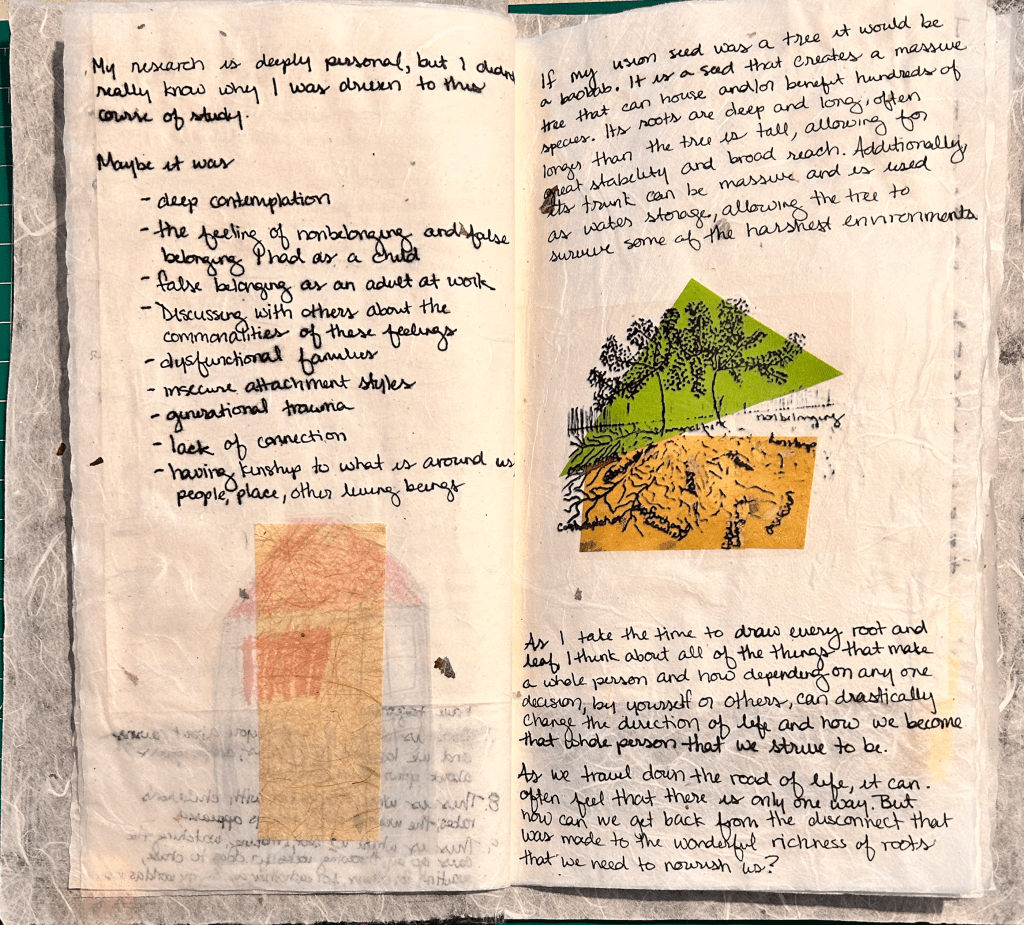 My research is deeply personal, but I didnt
really know why I was driven to this
course of study.
Maybe it was
- deep contemplation
- the feeling of nonbelonging and false
belonging I had as a child
- false belonging as an adult at work
- Discussing with others about the
commonalities of these feelings
- dysfunctional families
- insecure attachment styles
- generational trauma
- lack of connection
- having kinship to what is around us
people, place, other living beings
If my vision seed was a tree it would be
a baobab. It is a seed that creates a massive
tree that can house and/or benefit hundreds of
species. Its roots are deep and long, often
longer than the tree is tall, allowing for
great stability and broad reach. Additionally,
its trunk can be massive and is used
as water storage, allowing the tree to
survive some of the harshest environments.
nonbelonging
kinship
loss
contemplation
As I take the time to draw every root and
leaf, I think about all of the things that make
a whole person and how depending on any one
decision, by yourself or others, can drastically
change the direction of life and how we become
that whole person that we strive to be.
As we travel down the road of life, it can
often feel that there is only one way. But
how can we get back from the disconnect that
was made to the wonderful richness of roots
that we need to nourish us?